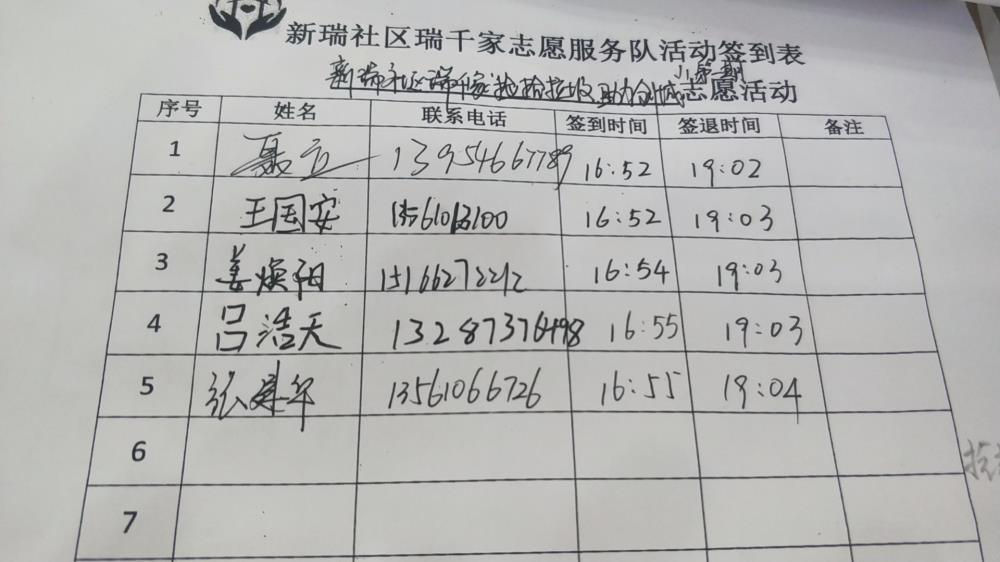 新瑞社区瑞千家志愿服务队活动签到表
新瑞社区瑞千家捡拾垃圾助力创城小第一期志愿活动
序号 姓名 联系电话 签到时间 签退时间 备注
1 聂立 13954667789 16:52 19:02
2 王国安 16:52 19:03
3 姜焕阳 15166272212 16:54 19:03
4 吕浩天 13287376498 16:55 19:03
5 张建华 13561066726 16:55 19:04
6
7